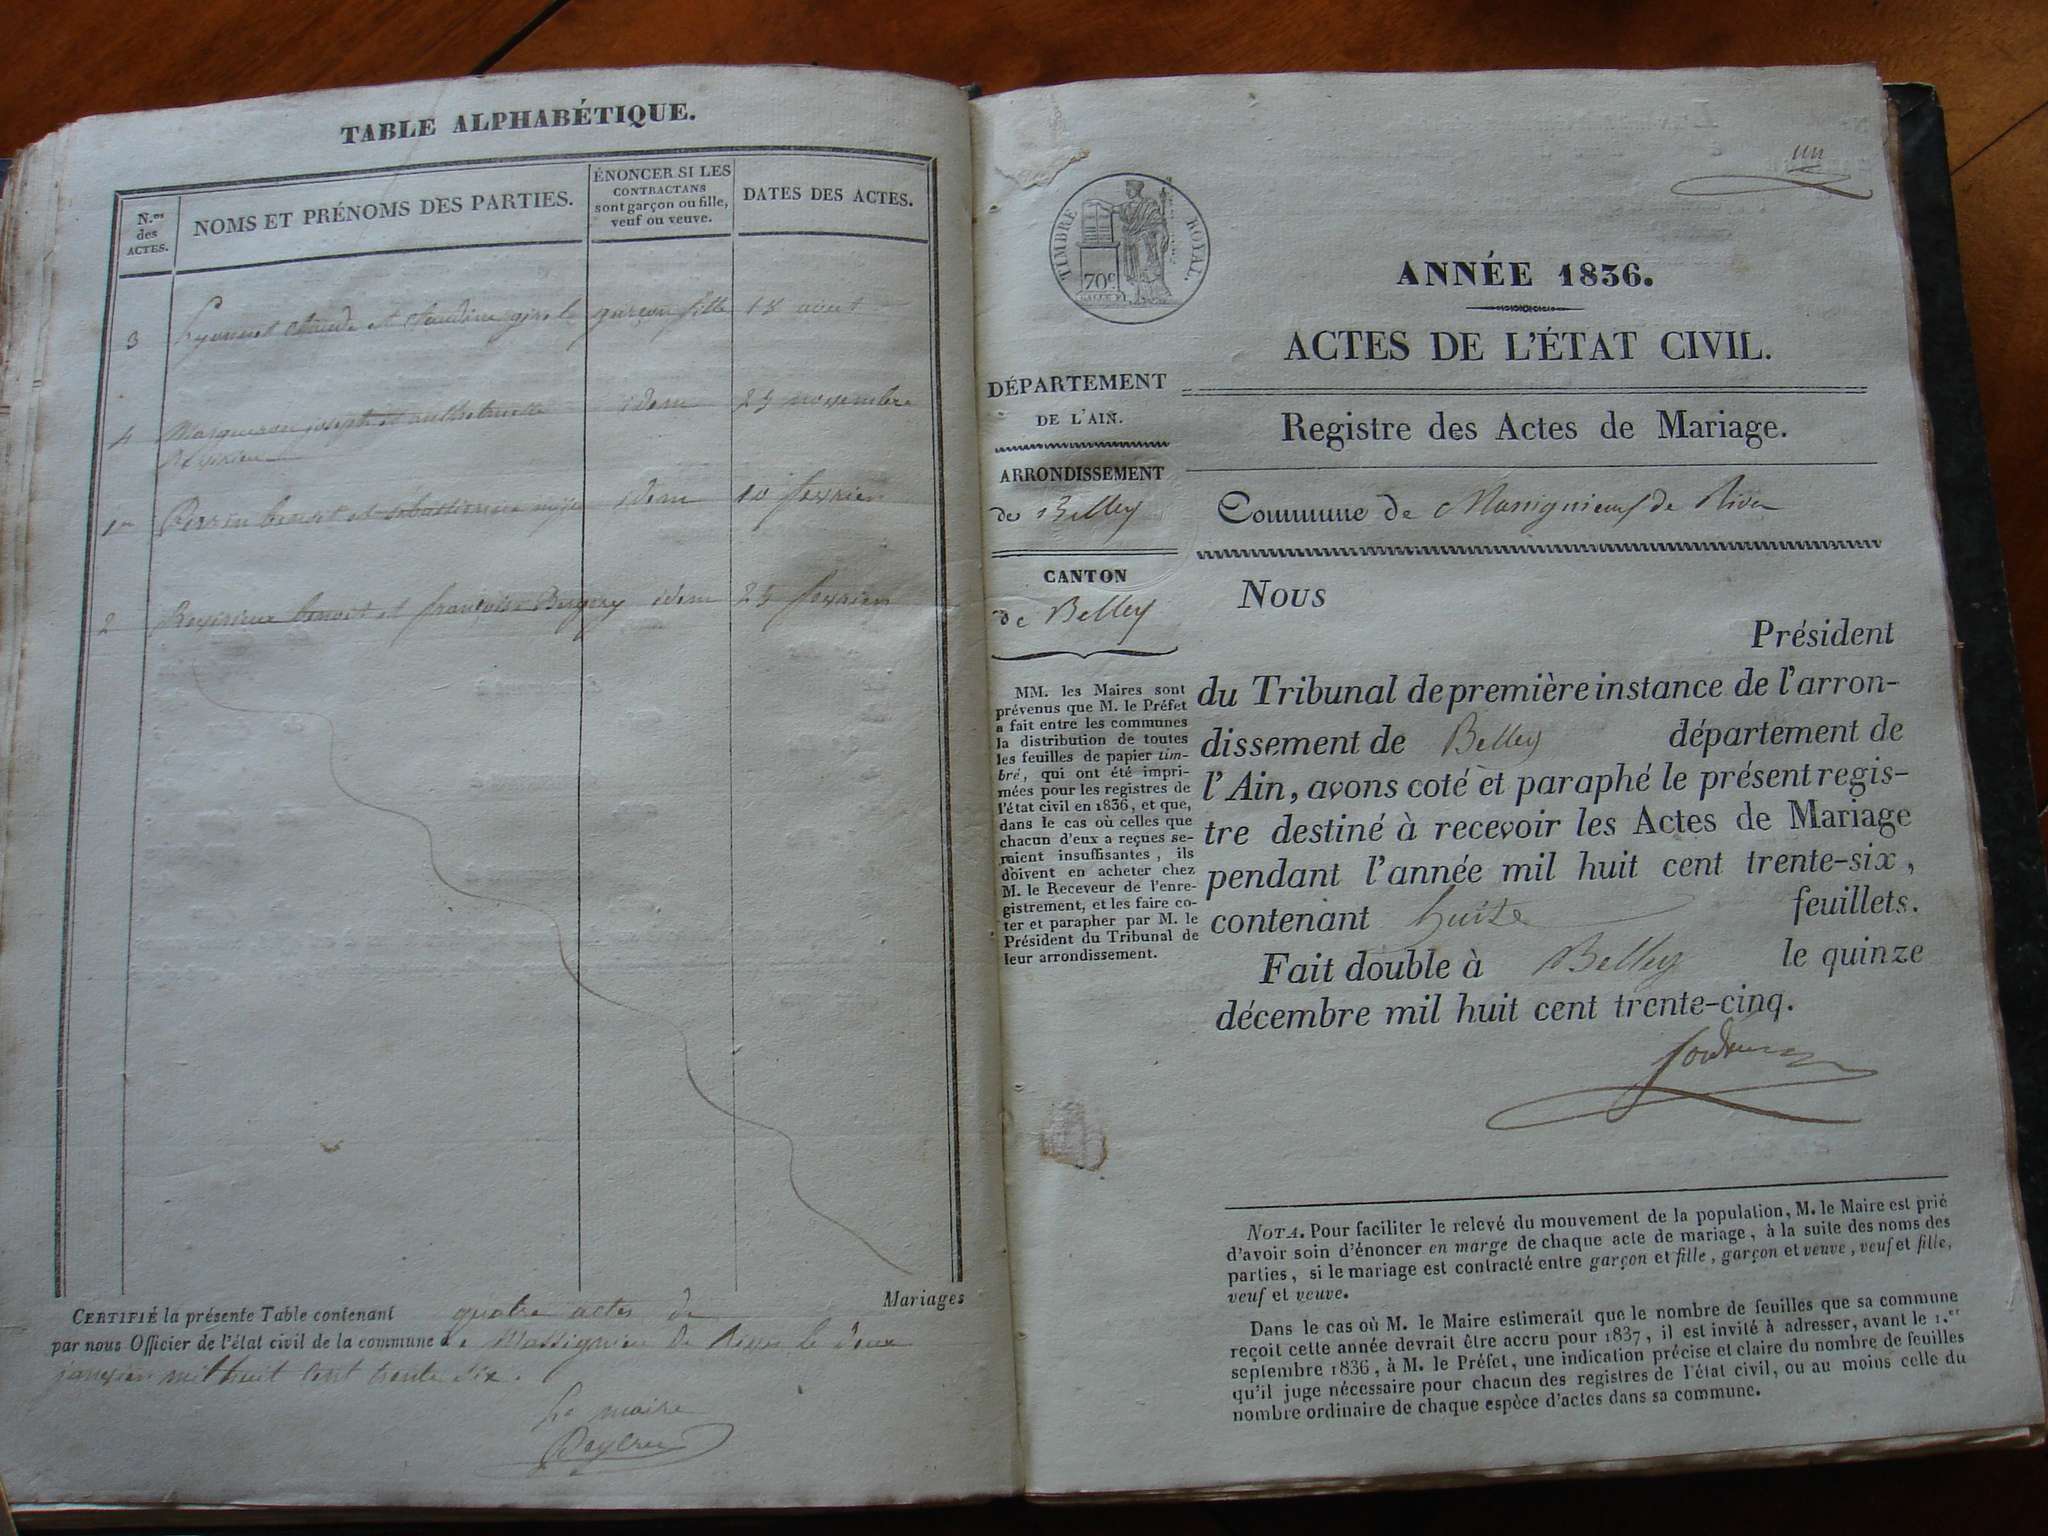 TABLE ALPHABÉTIQUE.
N.os des ACTES.
NOMS ET PRÉNOMS DES PARTIES.
ÉNONCER SI LES
CONTRACTANS
sont garçon ou fille,
veuf ou veuve.
DATES DES ACTES.
3 claude et claudine garçon fille 18 aout
4 joseph et idem 25 novembre
1er Perrin benoit et idem 10 fevrier
2 benoit et françoise idem 25 fevrier
Mariages
CERTIFIÉ la présente Table contenant quatre actes de
par nous Officier de l'état civil de la commune de Massignieu de Rives le deux
janvier mil huit cent trente six.
le maire
un
TIMBRE ROYAL.
70c
ANNÉE 1836.
ACTES DE L'ÉTAT CIVIL.
DÉPARTEMENT
DE L'AIN.
ARRONDISSEMENT
de Belley
CANTON
de Belley
Registre des Actes de Mariage.
Commune de Massignieux de Rives
MM. les Maires sont
prévenus que M. le Préfet
a fait entre les communes
la distribution de toutes
les feuilles de papier tim-
bré, qui ont été impri-
mées pour les registres de
l'état civil en 1836, et que,
dans le cas où celles que
chacun d'eux a reçues se-
raient insuffisantes, ils
doivent en acheter chez
M. le Receveur de l'enre-
gistrement, et les faire co-
ter et parapher par M. le
Président du Tribunal de
leur arrondissement.
Nous
Président
du Tribunal de première instance de l'arron-
dissement de Belley département de
l'Ain, avons coté et paraphé le présent regis-
tre destiné à recevoir les Actes de Mariage
pendant l'année mil huit cent trente-six,
contenant huit feuillets.
Fait double à Belley le quinze
décembre mil huit cent trente-cinq.
NOTA. Pour faciliter le relevé du mouvement de la population, M. le Maire est prié
d'avoir soin d'énoncer en marge de chaque acte de mariage, à la suite des noms des
parties, si le mariage est contracté entre garçon et fille, garçon et veuve, veuf et fille,
veuf et veuve.
Dans le cas où M. le Maire estimerait que le nombre de feuilles que sa commune
reçoit cette année devrait être accru pour 1837, il est invité à adresser, avant le 1.er
septembre 1836, à M. le Préfet, une indication précise et claire du nombre de feuilles
qu'il juge nécessaire pour chacun des registres de l'état civil, ou au moins celle du
nombre ordinaire de chaque espèce d'actes dans sa commune.